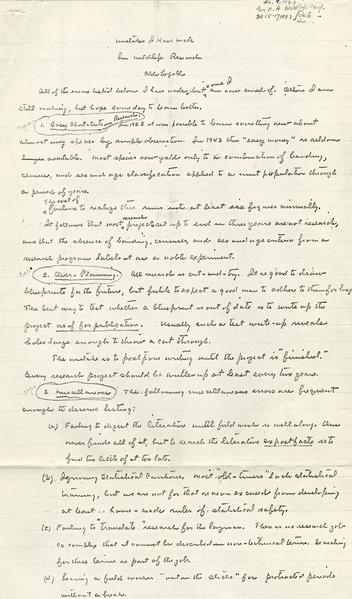 Mistakes I Have Made
In Wildlife Research
Aldo Leopold
All of the errors listed below I have made, but some I am now cured of. Others I am
still making, but hope someday to learn better.
1. Easy Short-Cuts In 1923 it was possible to learn something new about
almost any species by simple observation. In 1943 this "easy money" is seldom
available. Most species now yield only to the combination of banding,
census, and sex and age classification applied to a unit population through
a period of years.
Failure to realize this runs into at least six figures annually.
It follows that most projects set up to end in three years are not research,
and that the absence of banding, censuses, and sex and age criteria from a
research program labels it as a noble experiment.
2. Over-Planning. All research is cut-and-try. It is good to draw
blueprints for the future, but futile to expect a good man to adhere to them for long.
The best way to test whether a blueprint is out of date is to write up the
project as if for publication. Usually such a test write-up reveals
holes large enough to throw a cat through.
The mistake is to postpone writing until the project is "finished."
Every research project should be written up at least every two years.
3. Miscellaneous The following miscellaneous errors are frequent
enough to deserve listing:
(a) Failing to digest the literature until field work is well along. One
never finds all of it, but to search the literature ex post facto is to
find too little of it too late.
(b) Ignoring Statistical Cautions. Most "old-timers" lack statistical
training, but we are not for that reason excused from developing
at least home-made rules of statistical safety.
(c) Failing to "translate" research for the layman. There is no research job
so complex that it cannot be described in non-technical terms. Searching
for these terms is part of the job.
(d) Leaving a field worker "out in the sticks" for protracted periods
without a break.